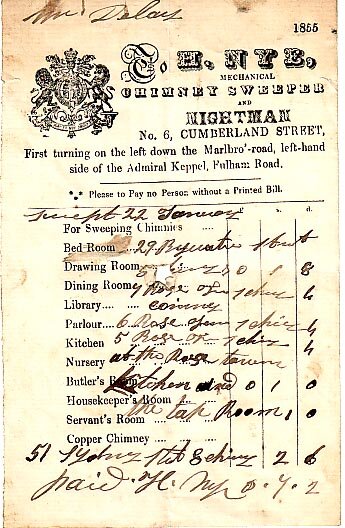 1855
T. H. NYE,
MECHANICAL
CHIMNEY SWEEPER
AND
NIGHTMAN
No. 6, CUMBERLAND STREET,
First turning on the left down the Marlbro'-road, left-hand
side of the Admiral Keppel, Fulham Road.
*** Please to Pay no Person without a Printed Bill.
swept 22 January s. d.
For Sweeping Chimnies
Bed Room 29
Drawing Room 0 1 8
Dining Room 7 Rose 1 chiy 6
Library
Parlour 6 Rose 1 chiy 4
Kitchen 5 Rose 1 chiy 4
Nursery at the Rose tavern
Butler's Room kitchen and 0 1 0
Housekeeper's Room
Servant's Room the tap Room 1 0
Copper Chimney
51 Sydny St 5 chiy 2 6
paid H. Ny 0. 7. 2